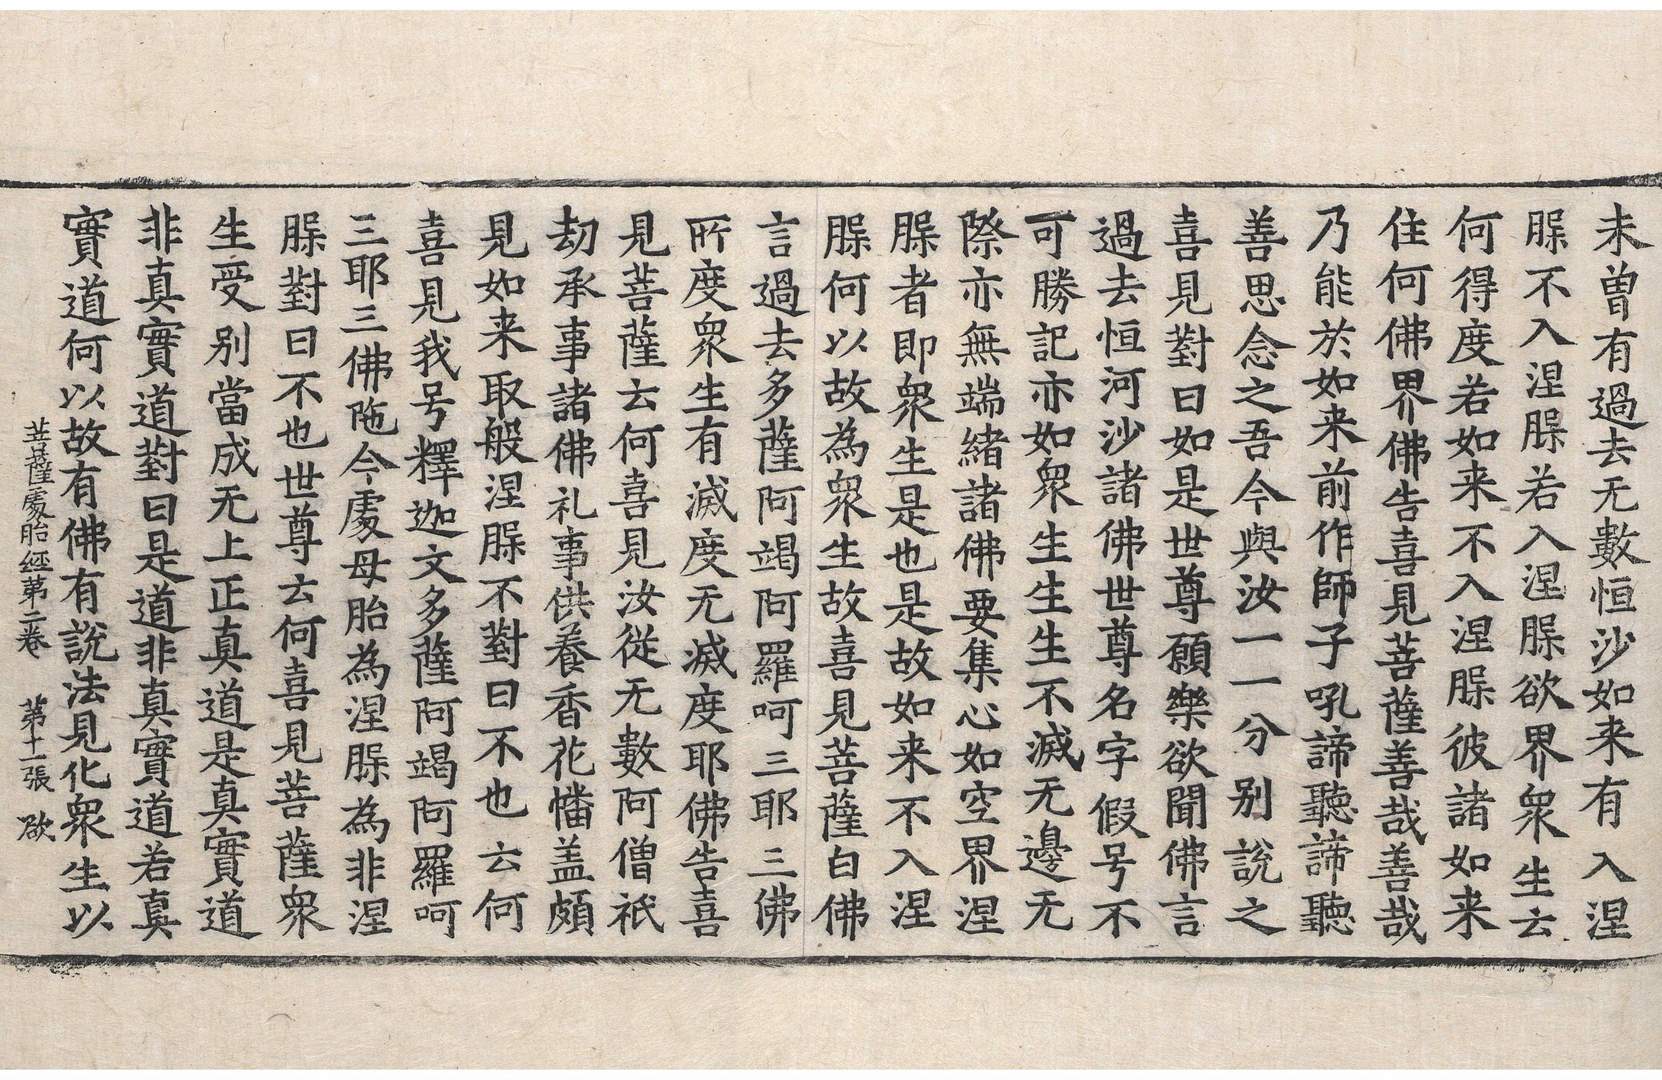 未曽有過去无數恒沙如来有入涅
𦙶不入涅𦙶若入涅𦙶欲界衆生云
何得度若如来不入涅𦙶彼諸如来
住何佛界佛告喜見菩薩善哉善哉
乃能於如来前作師子吼諦聽諦聽
善思念之吾今與汝一一分別說之
喜見對曰如是世尊願樂欲聞佛言
過去恒河沙諸佛世尊名字假号不
可勝記亦如衆生生生不滅无邊无
際亦無端緒諸佛要集心如空界涅
𦙶者即衆生是也是故如来不入涅
𦙶何以故為衆生故喜見菩薩白佛
言過去多薩阿竭阿羅呵三耶三佛
所度衆生有滅度无滅度耶佛告喜
見菩薩云何喜見汝従无數阿僧祇
劫承事諸佛礼事供養香花幡盖頗
見如来取般涅𦙶不對曰不也云何
喜見我号釋迦文多薩阿竭阿羅呵
三耶三佛陁今處母胎為涅𦙶為非涅
𦙶對曰不也世尊云何喜見菩薩衆
生受別當成无上正真道是真實道
非真實道對曰是道非真實道若真
實道何以故有佛有說法見化衆生以
菩薩處胎經第二卷 第十一張 欲